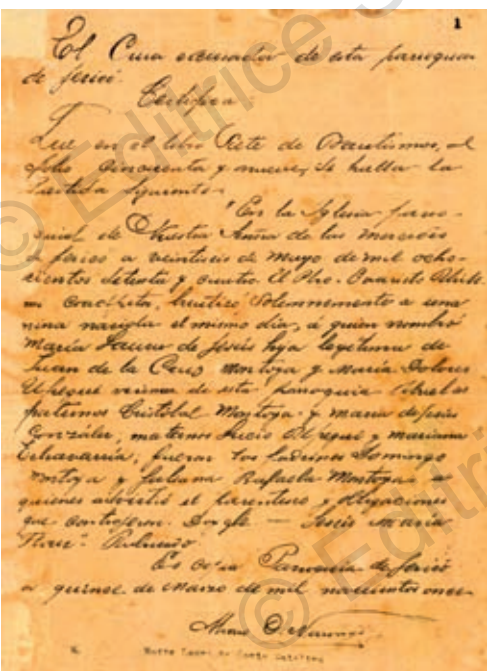 1
El Cura excusador de esta parroquia
de Jericó.
Certifica
Que en el libro Siete de Bautismos, al
folio cincuenta y nueve, se halla la
Partida siguiente.
"En la Iglesia parro-
quial de Nuestra Señora de las Mercedes
de Jericó a veintiseis de Mayo de mil ocho-
cientos setenta y cuatro. El Pbro. Evaristo
Coadjutor, bautizó solemnemente a una
niña nacida el mismo día, á quien nombró
María Laura de Jesús hija legitima de
Juan de la Cruz Montoya y María Dolores
Upegui vecinos de esta parroquia Abuelos
paternos Cristobal Montoya y María de Jesús
González, maternos Lucio Upegui y Mariana
Echavarría, fueron los padrinos Domingo
Montoya y Juliana Rafaela Montoya a
quienes advirtió el parentesco y obligaciones
que contrajeron. Doy fe — Jesús María
Es copia Parroquia de Jericó
a quince de Marzo de mil novecientos once
© Editrice
© Editrice